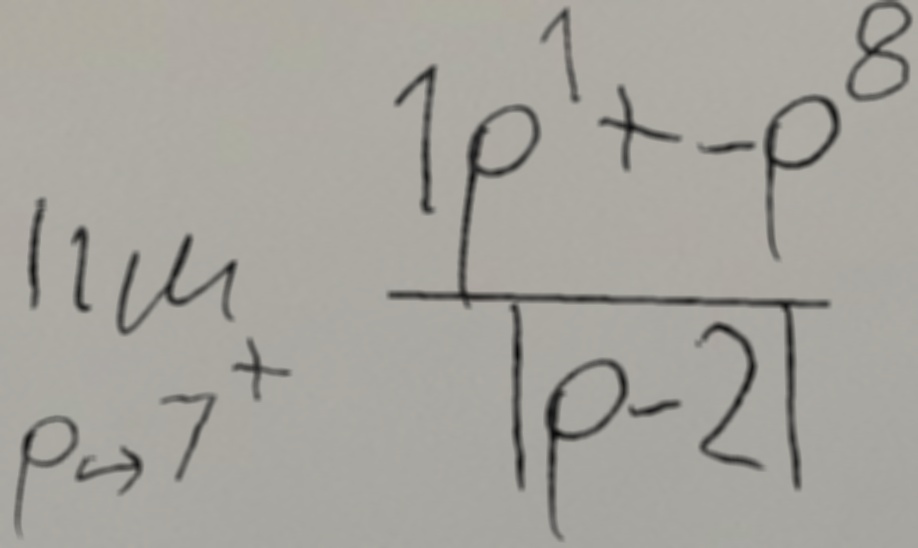 \lim_{p \to 7^+} \frac{1p^1 + -p^8}{|p-2|}